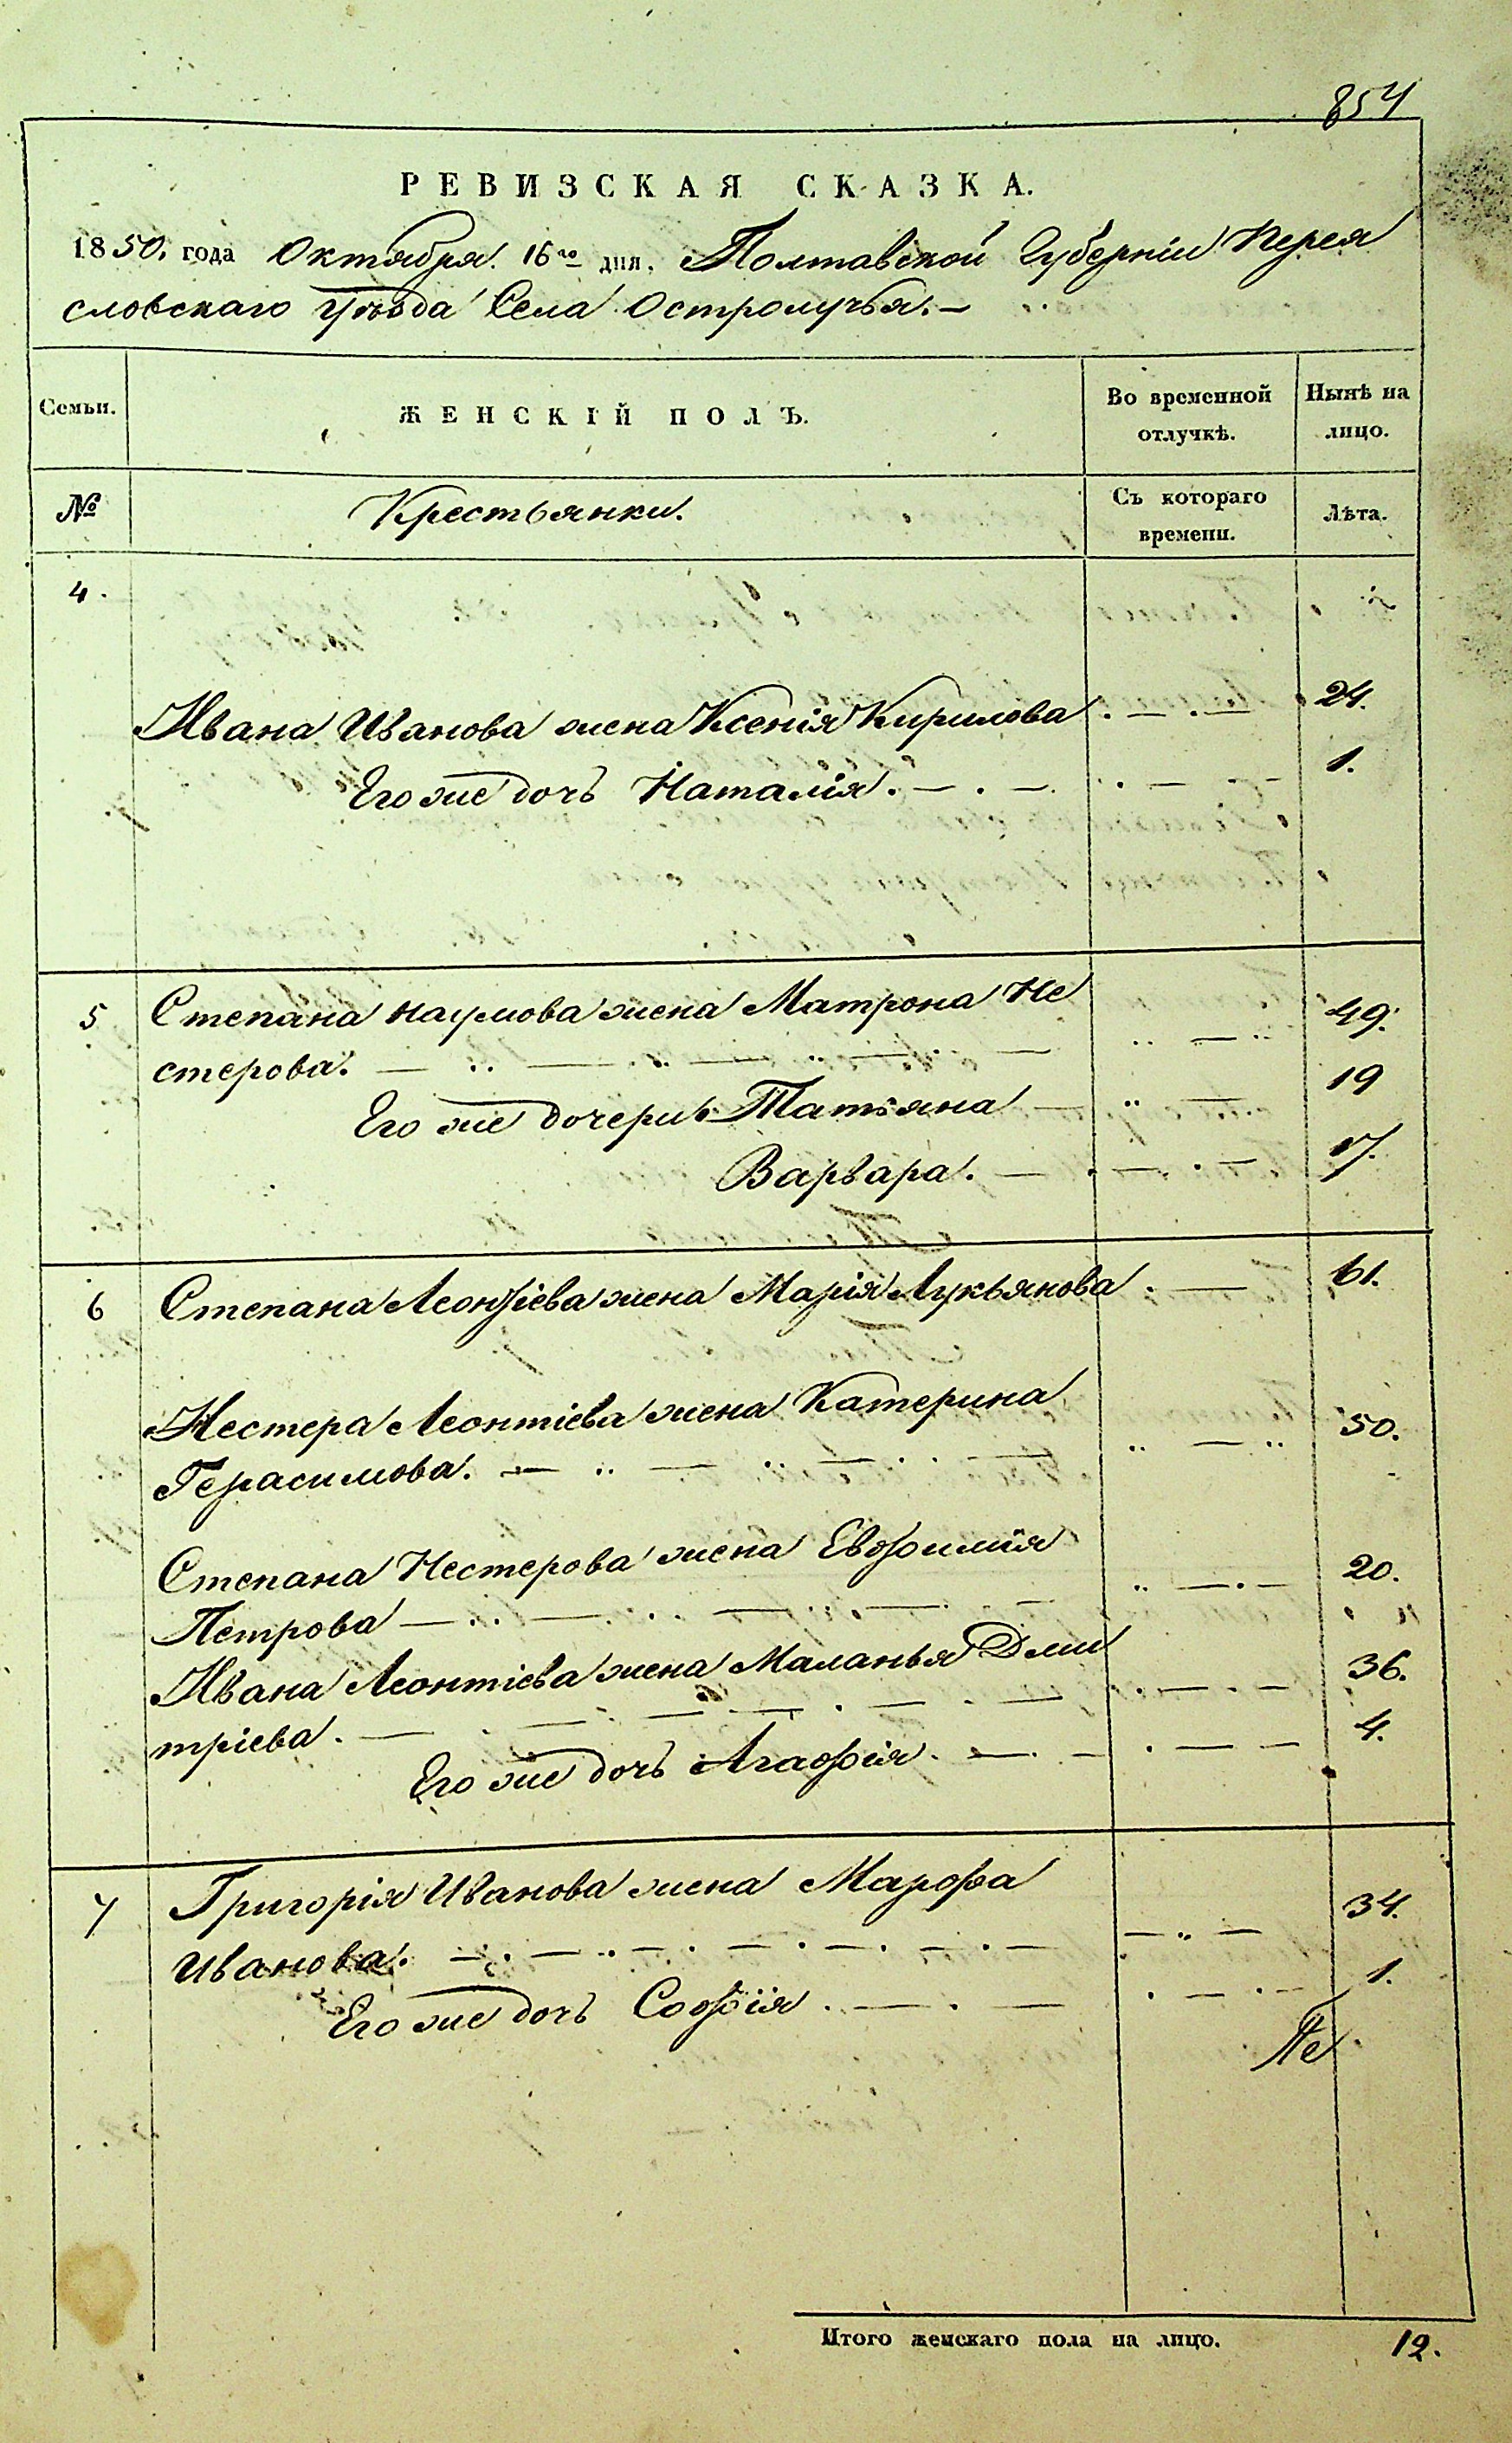 854
РЕВИЗСКАЯ СКАЗКА.
1850. года Октября 16го дня. Полтавской Губерніи Перея
словскаго уѣзда Села Остролучья. —
Семьи.
ЖЕНСКІЙ ПОЛЪ.
Во временной
отлучкѣ.
Нынѣ на
лицо.
№
Крестьянки.
Съ котораго
времени.
Лѣта.
4.
Ивана Иванова жена Ксенія Кирилова 24.
Его же дочь Наталія. 1.
5 Степана Наумова жена Матрона Не
стерова. 49.
Его же дочери Татьяна 19
Варвара. 17.
6 Степана Леонтіева жена Марія Лукьянова 61.
Нестера Леонтіева жена Катерина
Герасимова. 50.
Степана Нестерова жена Евфимія
Петрова 20.
Ивана Леонтіева жена Маланья Дми
тріева. 36.
Его же дочь Агафія. 4.
7 Григорія Иванова жена Марфа
Иванова. 34.
Его же дочь Софія. 1.
Пе
Итого женскаго пола на лицо. 12.